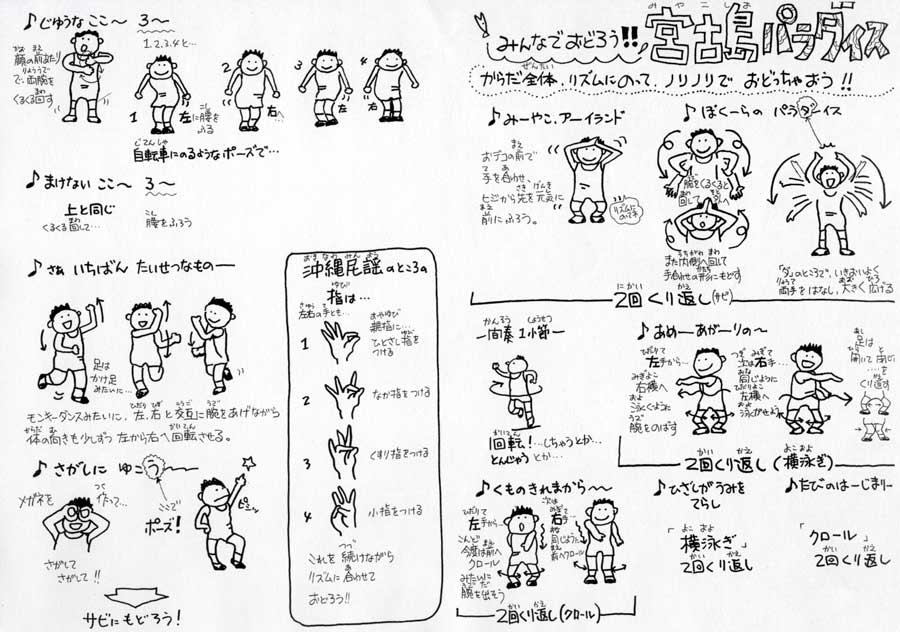 みんなでおどろう!! 宮古島パラダイス
からだ全体、リズムにのって、ノリノリで おどっちゃおう!!
♪みーやこ、アーイランド
おデコの前で
手を合わせ、
ヒジから先を元気に
前にふろう。
リズムに
のってネ
♪ぼくーらの パラダーイス
腕をくるくると
回して
外へ
また内側へ回して
手合わせの形にもどす
「ダ」のところで、いきおいよく
両手をはなし、大きく広げる
2回くり返し(サビ)
間奏1小節
1回転!…しちゃうとか…
とんじゃうとか…
♪あめーあがーりのー
左手から…
右横へ
泳ぐように
腕をのばす
次は右手…
同じように
左横へ
泳がせよう
足は
開いて閉じ
…を
くり返す
2回くり返し(横泳ぎ)
♪くものきれまから〜〜
左手から…
今度は前へ
クロール
みたいに
腕を出そう
次は
右手…
同じように
前へクロール
2回くり返し(クロール)
♪ひざしがうみを
てらし
「横泳ぎ」
2回くり返し
♪たびのはーじまりー
「クロール」
2回くり返し
♪じゆうな ここ〜 3〜
顔の前あたり
で、両腕を
くるくる回す
1.2.3.4と…
1
左に腰を
ふる
2
右へ
3
左
4
右
自転車にのるようなポーズで…
♪まけない ここ〜 3〜
上と同じ
くるくる回して…
腰をふろう
♪さあ いちばん たいせつなものー
足は
かけ足
みたいに…
モンキーダンスみたいに、左、右と交互に腕をあげながら
体の向きも少しずつ左から右へ回転させる。
♪さがしに ゆこうーー
メガネを作って…
さがして
さがして!!
ここで
ポーズ!
ピシッ
サビにもどろう!
沖縄民謡のところの
指は…
左右の手とも…
1
親指に…
ひとさし指を
つける
2
なか指をつける
3
くすり指をつける
4
小指をつける
これを続けながら
リズムに合わせて
おどろう!!